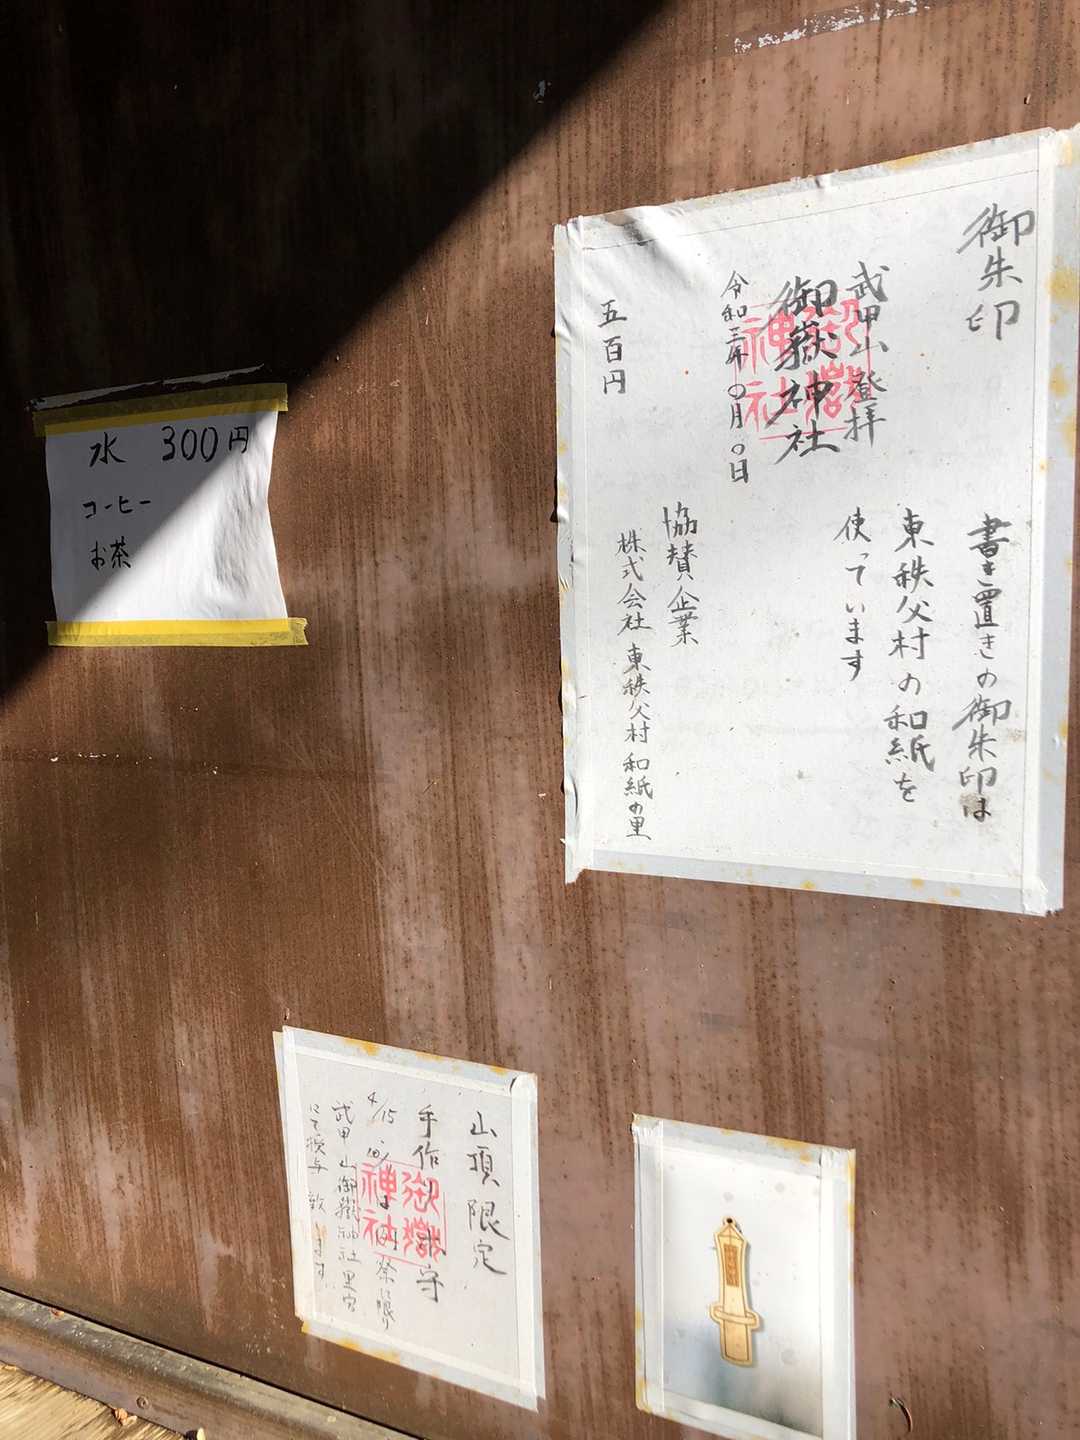 水 300円
コーヒー
お茶
御朱印
書き置きの御朱印は
東秩父村の和紙を
使っています
武甲山登拝
御嶽神社
御嶽神社
令和三年〇月〇日
協賛企業
株式会社 東秩父村 和紙の里
五百円
山頂限定
手作り 守
御嶽
神社
祭に限り
武甲山御嶽神社里宮
にて授与致します